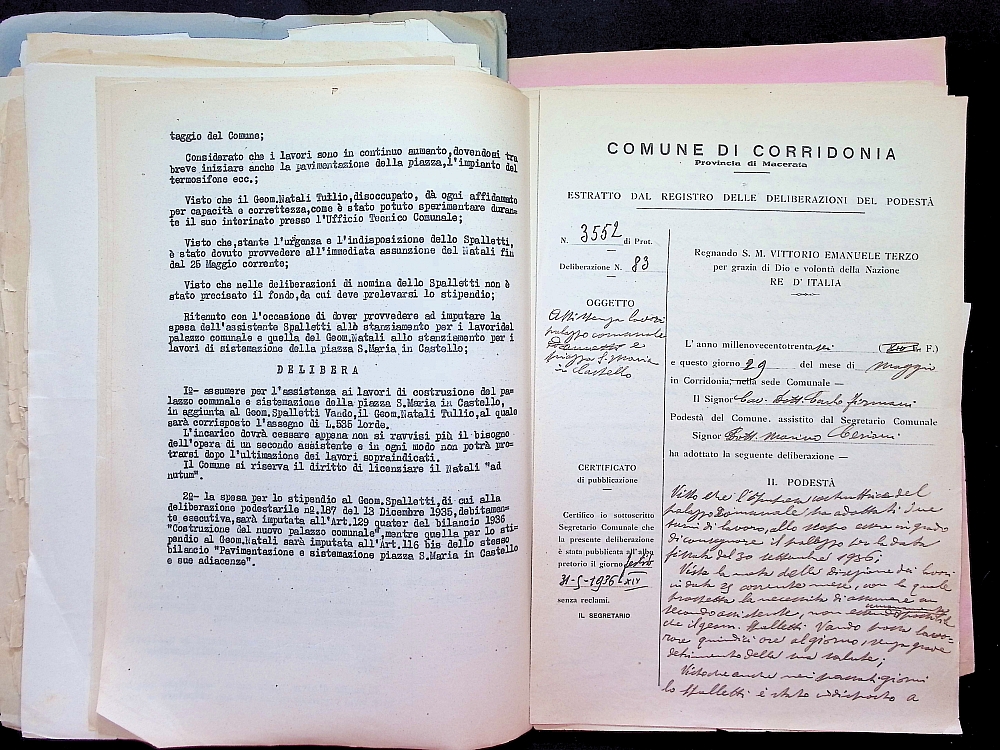 taggio del Comune;
Considerato che i lavori sono in continuo aumento,dovendosi tra
breve iniziare anche la pavimentazione della piazza,l'impianto del
termosifone ecc.;
Visto che il Geom.Natali Tullio,disoccupato, dà ogni affidamento
per capacità e correttezza,come è stato potuto sperimentare duran-
te il suo interinato presso l'Ufficio Tecnico Comunale;
Visto che,stante l'urgenza e l'indisposizione dello Spalletti,
è stato dovuto provvedere all'immediata assunzione del Natali fin
dal 25 Maggio corrente;
Visto che nelle deliberazioni di nomina dello Spalletti non è
stato precisato il fondo,da cui deve prelevarsi lo stipendio;
Ritenuto con l'occasione di dover provvedere ad imputare la
spesa dell'assistente Spalletti allo stanziamento per i lavoridel
palazzo comunale e quella del Geom.Natali allo stanziamento per i
lavori di sistemazione della piazza S.Maria in Castello;
DELIBERA
1º- assumere per l'assistenza ai lavori di costruzione del pa-
lazzo comunale e sistemazione della piazza S.Maria in Castello,
in aggiunta al Geom.Spalletti Vando,il Geom.Natali Tullio,al quale
sarà corrisposto l'assegno di L.535 lorde.
L'incarico dovrà cessare appena non si ravvisi più il bisogno
dell'opera di un secondo assistente e in ogni modo non potrà pro-
trarsi dopo l'ultimazione dei lavori sopraindicati.
Il Comune si riserva il diritto di licenziare il Natali "ad
nutum".
2º- la spesa per lo stipendio al Geom.Spalletti,di cui alla
deliberazione podestarile nº.187 del 13 Dicembre 1935,debitamen-
te esecutiva,sarà imputata all'Art.129 quater del bilancio 1936
"Costruzione del nuovo palazzo comunale",mentre quella per lo sti-
pendio al Geom.Natali sarà imputata all'Art.116 bis dello stesso
bilancio "Pavimentazione e sistemazione piazza S.Maria in Castello
e sue adiacenze".
COMUNE DI CORRIDONIA
Provincia di Macerata
ESTRATTO DAL REGISTRO DELLE DELIBERAZIONI DEL PODESTÀ
N. 3552 di Prot.
Deliberazione N. 83
OGGETTO
Assistenza lavori
palazzo comunale
e
piazza S. Maria
in Castello
CERTIFICATO
di pubblicazione
Certifico io sottoscritto
Segretario Comunale che
la presente deliberazione
è stata pubblicata all'albo
pretorio il giorno festivo
31-5-1936 XIV
senza reclami.
IL SEGRETARIO
Regnando S. M. VITTORIO EMANUELE TERZO
per grazia di Dio e volontà della Nazione
RE D'ITALIA
L'anno millenovecentotrentasei ( E. F.)
e questo giorno 29 del mese di Maggio
in Corridonia, nella sede Comunale —
Il Signor Cav. Dott. Carlo Firmani
Podestà del Comune, assistito dal Segretario Comunale
Signor Dott. Marino Ceriani
ha adottato la seguente deliberazione —
IL PODESTÀ
Visto che l'Impresa costruttrice del
palazzo comunale, ha adottati due
turni di lavoro, allo scopo essere in grado
di consegnare il palazzo per la data
fissata del 30 settembre 1936;
Vista la nota della direzione dei lavori
in data 25 corrente mese, con la quale
prospetta la necessità di assumere un
secondo assistente, non essendo possibile
che il geom. Spalletti Vando possa lavo-
rare quindici ore al giorno, senza grave
detrimento della sua salute;
Visto che anche nei passati giorni
lo Spalletti è stato indisposto a